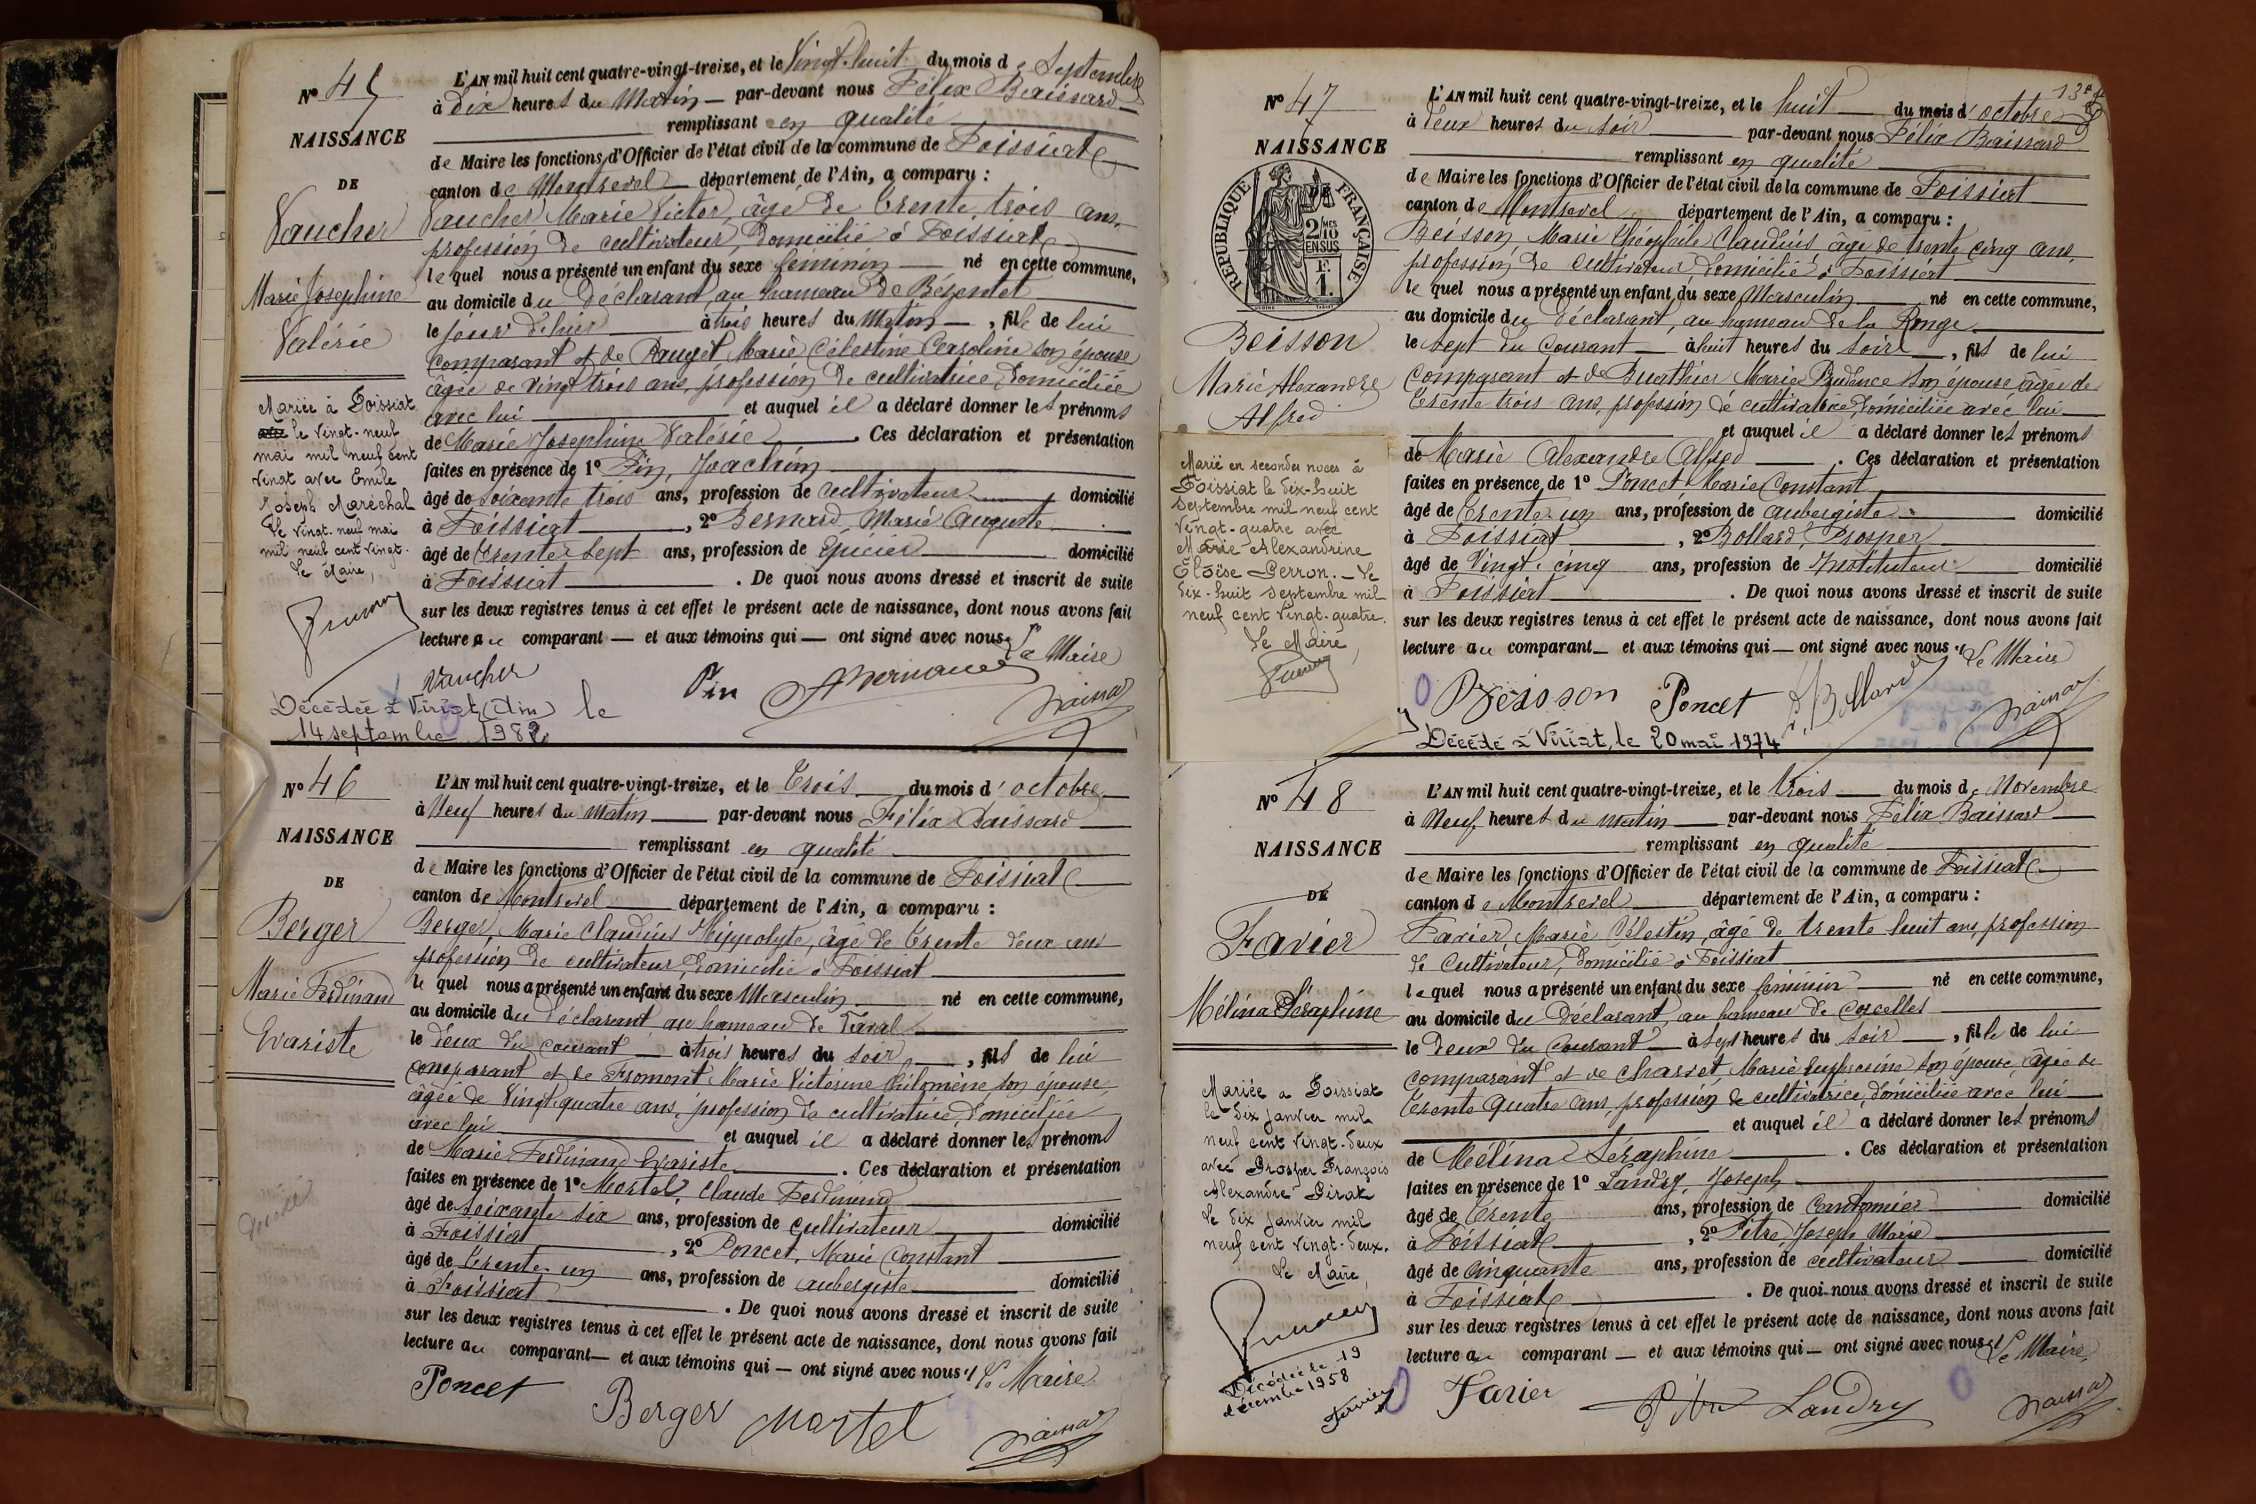 N° 45
NAISSANCE
DE
Vaucher
Marie Josephine
Valérie
Mariée à Foissiat
le vingt-neuf
mai mil neuf cent
vingt avec Emile
Joseph Maréchal
Le vingt-neuf mai
mil neuf cent vingt.
Le Maire,
L'AN mil huit cent quatre-vingt-treize, et le Vingt-huit du mois de Septembre
à Dix heures du Matin par-devant nous Félix Baissard
remplissant en qualité
de Maire les fonctions d'Officier de l'état civil de la commune de Foissiat
canton de Montrevel département de l'Ain, a comparu :
Vaucher Marie Victor, âgé de trente trois ans,
profession de cultivateur, domicilié à Foissiat
lequel nous a présenté un enfant du sexe féminin né en cette commune,
au domicile du Déclarant, au hameau de Bézentet
le jour d'hier à trois heures du Matin, fille de lui
comparant et de Pauget Marie Célestine Caroline son épouse
âgée de vingt trois ans, profession de cultivatrice, domiciliée
avec lui et auquel il a déclaré donner les prénoms
de Marie Josephine Valérie. Ces déclaration et présentation
faites en présence de 1° Pin, Joachim
âgé de soixante trois ans, profession de cultivateur domicilié
à Foissiat, 2° Bernard, Marie Auguste
âgé de trente sept ans, profession de Epicier domicilié
à Foissiat. De quoi nous avons dressé et inscrit de suite
sur les deux registres tenus à cet effet le présent acte de naissance, dont nous avons fait
lecture au comparant et aux témoins qui ont signé avec nous. Le Maire
Vaucher Pin Bernard Baissard
Décédée à Viriat (Ain) le
14 septembre 1982
N° 46
NAISSANCE
DE
Berger
Marie Ferdinand
Evariste
L'AN mil huit cent quatre-vingt-treize, et le Trois du mois d'octobre
à Neuf heures du Matin par-devant nous Félix Baissard
remplissant en qualité
de Maire les fonctions d'Officier de l'état civil de la commune de Foissiat
canton de Montrevel département de l'Ain, a comparu :
Berger, Marie Claudius Hyppolyte, âgé de trente deux ans
profession de cultivateur, domicilié à Foissiat
lequel nous a présenté un enfant du sexe Masculin né en cette commune,
au domicile du Déclarant au hameau de
le deux du courant à trois heures du soir, fils de lui
comparant et de Fromont Marie Victorine Philomène son épouse
âgée de Vingt quatre ans, profession de cultivatrice, domiciliée
avec lui et auquel il a déclaré donner les prénoms
de Marie Ferdinand Evariste. Ces déclaration et présentation
faites en présence de 1° Mortel, Claude Ferdinand
âgé de soixante six ans, profession de cultivateur domicilié
à Foissiat, 2° Poncet, Marie Constant
âgé de trente-un ans, profession de aubergiste domicilié
à Foissiat. De quoi nous avons dressé et inscrit de suite
sur les deux registres tenus à cet effet le présent acte de naissance, dont nous avons fait
lecture au comparant et aux témoins qui ont signé avec nous. Le Maire
Poncet Berger Mortel Baissard
N° 47
NAISSANCE
RÉPUBLIQUE FRANÇAISE
2/10mes
EN SUS
F.
1.
Beisson
Marie Alexandre
Alfred
Marié en secondes noces à
Foissiat le dix-huit
septembre mil neuf cent
vingt-quatre avec
Marie Alexandrine
Eloïse Perron. Le
dix-huit septembre mil
neuf cent vingt-quatre.
Le Maire,
13e
L'AN mil huit cent quatre-vingt-treize, et le huit du mois d'octobre
à deux heures du soir par-devant nous Félix Baissard
remplissant en qualité
de Maire les fonctions d'Officier de l'état civil de la commune de Foissiat
canton de Montrevel département de l'Ain, a comparu :
Beisson Marie Théophile Claudius âgé de trente cinq ans,
profession de cultivateur, domicilié à Foissiat
lequel nous a présenté un enfant du sexe Masculin né en cette commune,
au domicile du Déclarant, au hameau de la Ronge
le sept du courant à huit heures du soir, fils de lui
comparant et de Buathier Marie Prudence son épouse âgée de
trente trois ans, profession de cultivatrice, domiciliée avec lui
et auquel il a déclaré donner les prénoms
de Marie Alexandre Alfred. Ces déclaration et présentation
faites en présence de 1° Poncet Marie Constant
âgé de trente-un ans, profession de aubergiste domicilié
à Foissiat, 2° Bollard, Prosper
âgé de Vingt-cinq ans, profession de Instituteur domicilié
à Foissiat. De quoi nous avons dressé et inscrit de suite
sur les deux registres tenus à cet effet le présent acte de naissance, dont nous avons fait
lecture au comparant et aux témoins qui ont signé avec nous. Le Maire
Beisson Poncet P. Bollard Baissard
Décédé à Viriat, le 20 mai 1974
N° 48
NAISSANCE
DE
Favier
Mélina Séraphine
Mariée à Foissiat
le dix janvier mil
neuf cent vingt-deux
avec Prosper François
Alexandre Pirat
Le dix janvier mil
neuf cent vingt-deux.
Le Maire,
Décédée le 19
décembre 1958
L'AN mil huit cent quatre-vingt-treize, et le trois du mois de Novembre
à Neuf heures du matin par-devant nous Félix Baissard
remplissant en qualité
de Maire les fonctions d'Officier de l'état civil de la commune de Foissiat
canton de Montrevel département de l'Ain, a comparu :
Favier Marie Célestin, âgé de trente huit ans, profession
de cultivateur, domicilié à Foissiat
lequel nous a présenté un enfant du sexe féminin né en cette commune,
au domicile du Déclarant, au hameau de Corcelles
le Deux du courant à sept heures du soir, fille de lui
comparant et de Charvet Marie Euphrosine son épouse, âgée de
trente quatre ans, profession de cultivatrice, domiciliée avec lui
et auquel il a déclaré donner les prénoms
de Mélina Séraphine. Ces déclaration et présentation
faites en présence de 1° Landry Joseph
âgé de trente ans, profession de Cantonnier domicilié
à Foissiat, 2° Pitre Joseph Marie
âgé de cinquante ans, profession de cultivateur domicilié
à Foissiat. De quoi nous avons dressé et inscrit de suite
sur les deux registres tenus à cet effet le présent acte de naissance, dont nous avons fait
lecture au comparant et aux témoins qui ont signé avec nous. Le Maire
Favier Pitre Landry Baissard